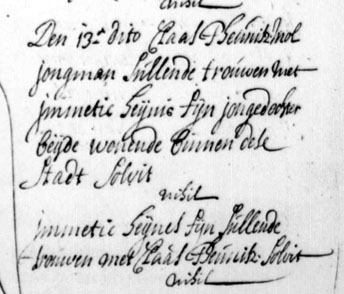 nihil
Den 13.en dito Claas Theunitz mol
jongman sullende trouwen met
jmmetie heijnis fijn jongedochter
beijde wonende binnen dese
Stadt Solvit
nihil
jmmetie heijnes fijn sullende
trouwen met Claas Theunitz. Solvit
nihil